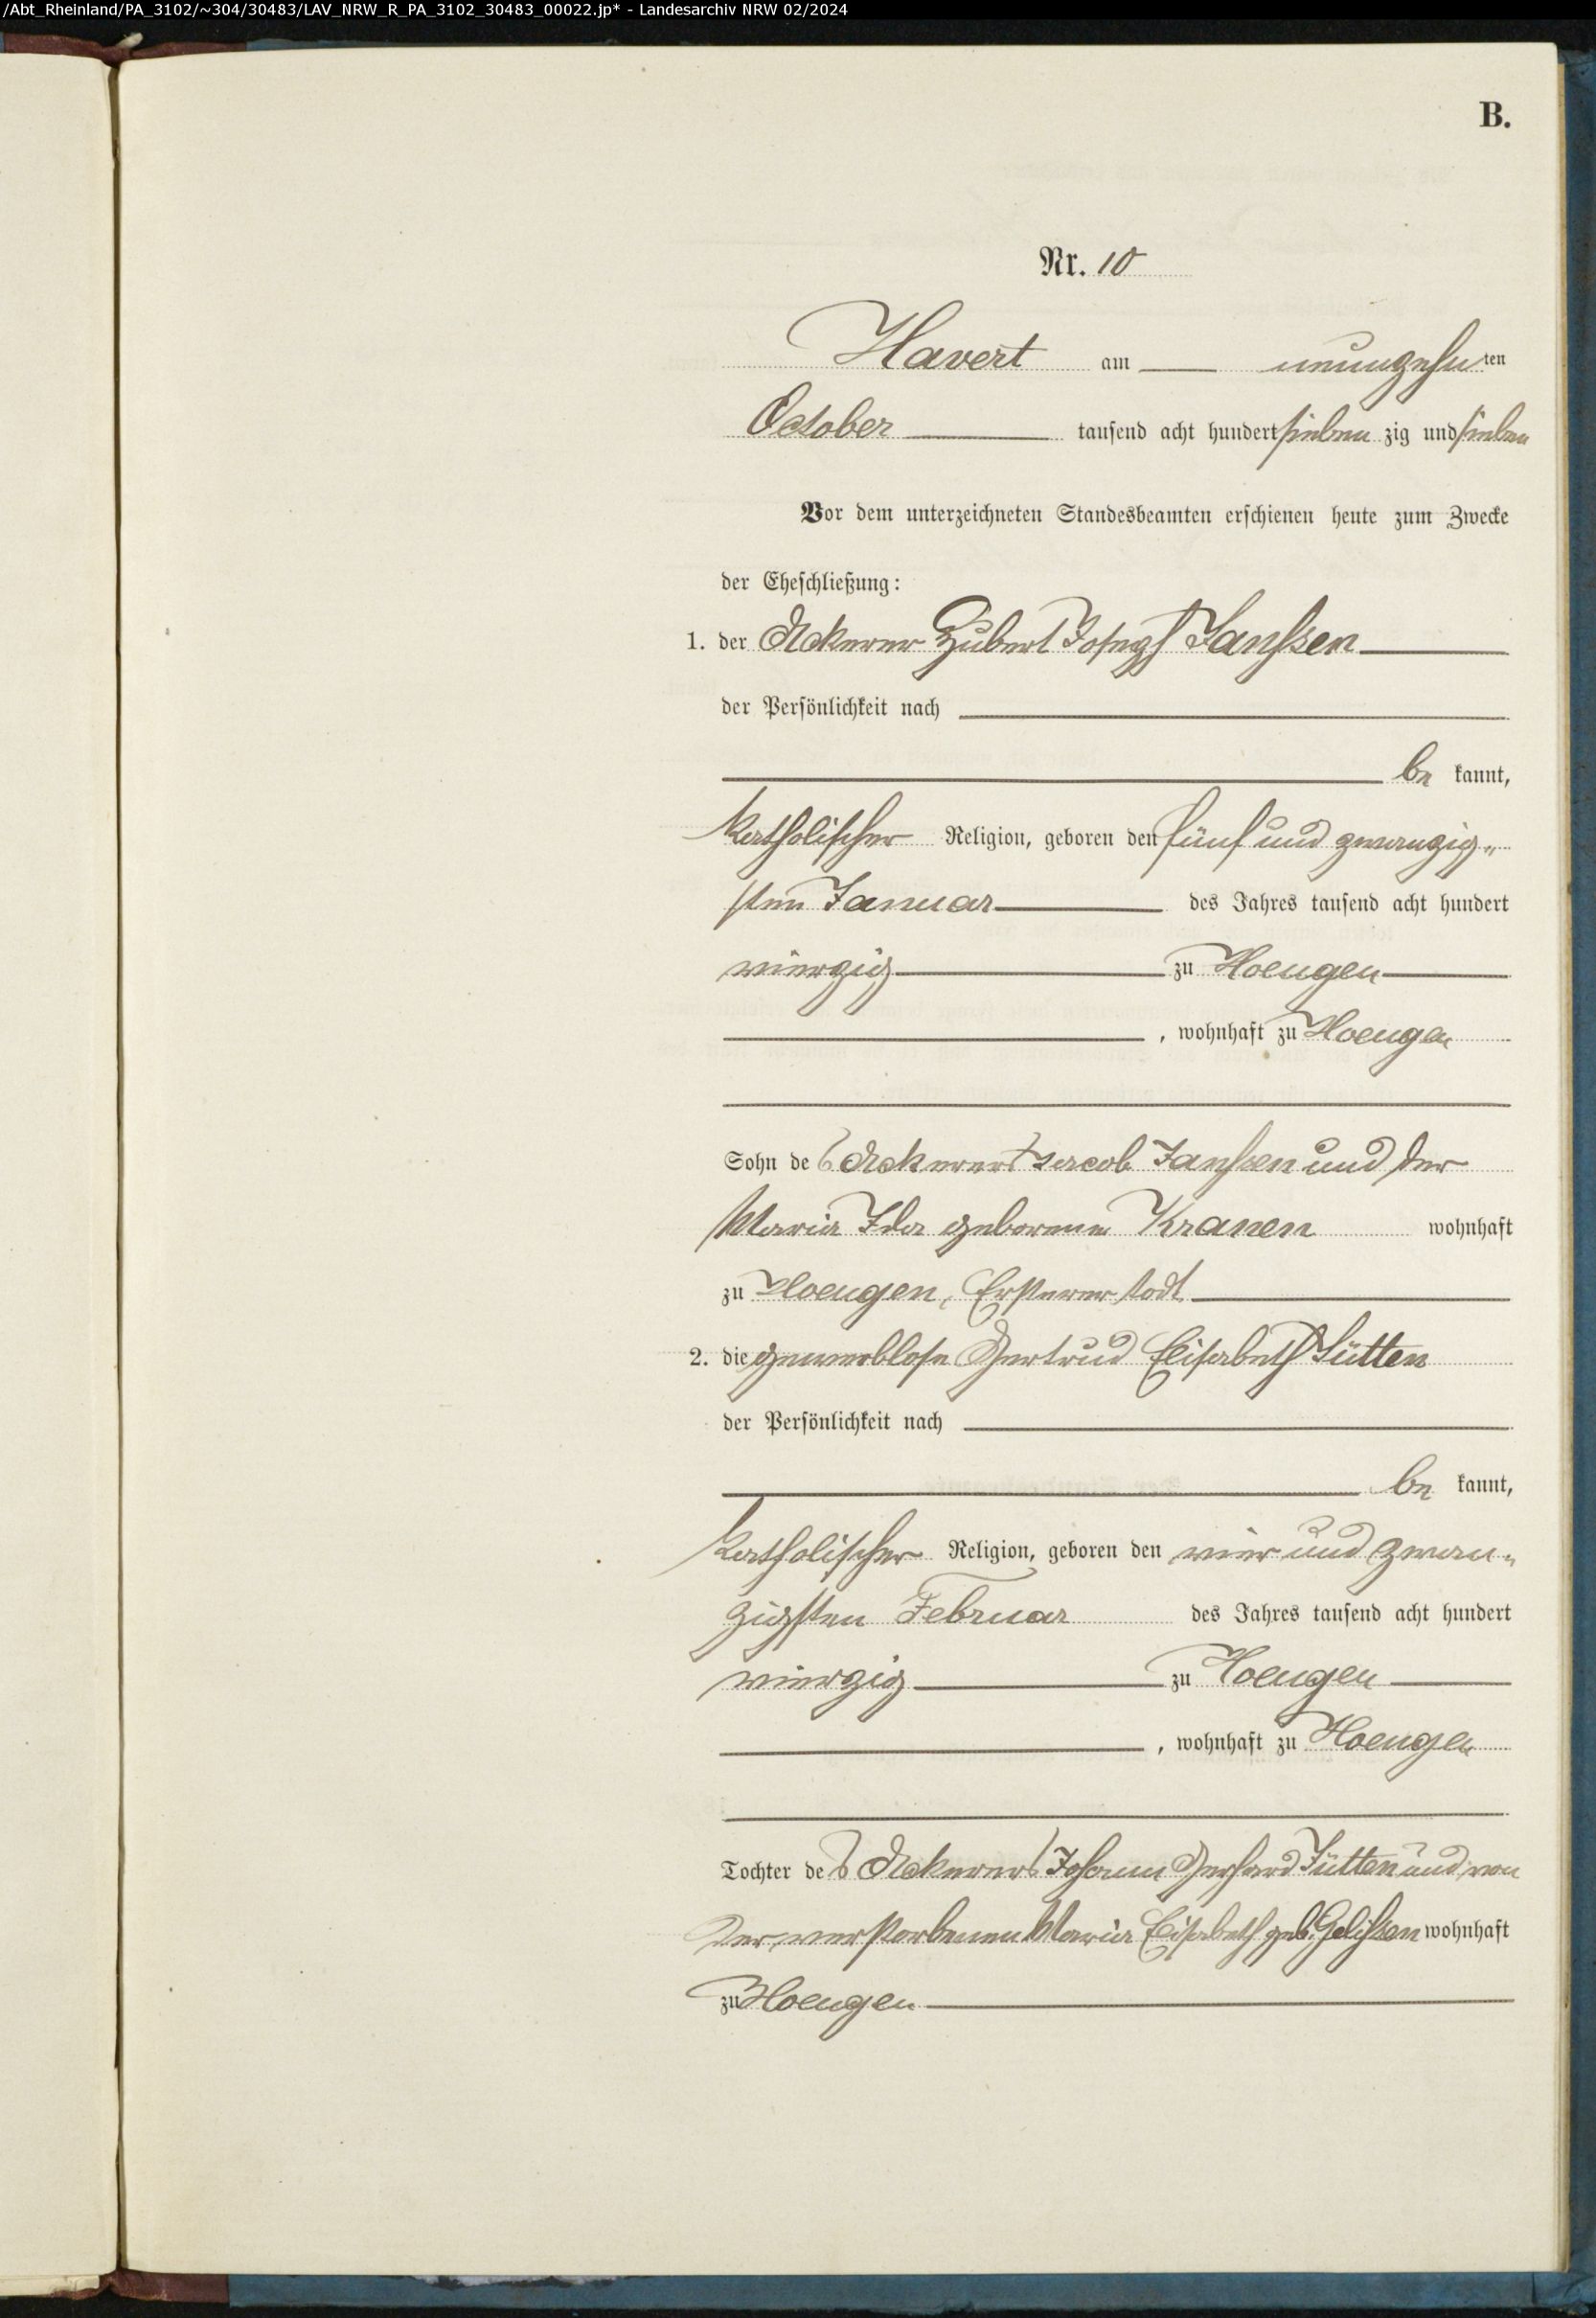 /Abt_Rheinland/PA_3102/~304/30483/LAV_NRW_R_PA_3102_30483_00022.jp* - Landesarchiv NRW 02/2024
B.
Nr. 10
Havert am neunzehnten
October tausend acht hundert sieben zig und sieben
Vor dem unterzeichneten Standesbeamten erschienen heute zum Zwecke
der Eheschließung:
1. der Ackerer Hubert Joseph Janßen
der Persönlichkeit nach
be kannt,
katholischer Religion, geboren den fünf und zwanzig„
sten Januar des Jahres tausend acht hundert
vierzig zu Hoengen
, wohnhaft zu Hoengen
Sohn des Ackerers Jacob Janßen und der
Maria Ida geborene Kranen wohnhaft
zu Hoengen, Ersterer todt
2. die gewerblose Gertrud Elisabeth Jütten
der Persönlichkeit nach
be kannt,
katholischer Religion, geboren den vier und zwan„
zigsten Februar des Jahres tausend acht hundert
vierzig zu Hoengen
, wohnhaft zu Hoengen
Tochter des Ackerers Johann Gerhard Jütten und von
der verstorbenen Maria Elisabeth geb. Gelißen wohnhaft
zu Hoengen